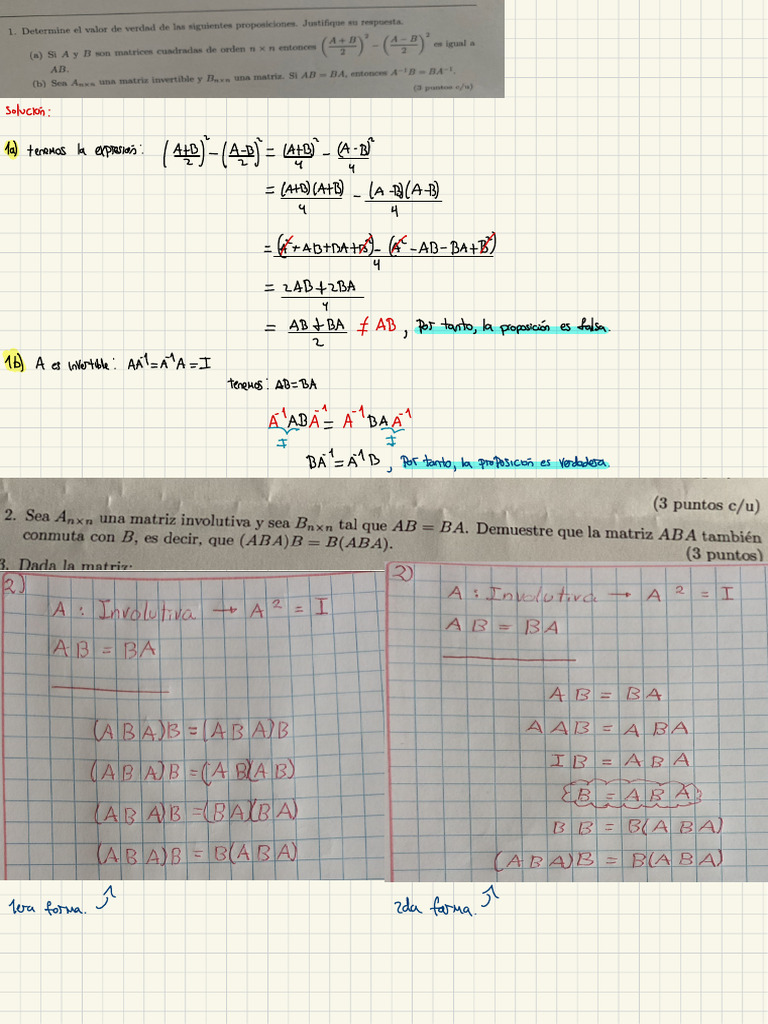 1. Determine el valor de verdad de las siguientes proposiciones. Justifique su respuesta.
(a) Si A y B son matrices cuadradas de orden n × n entonces ((A + B)/2)² − ((A − B)/2)² es igual a
AB.
(b) Sea Aₙₓₙ una matriz invertible y Bₙₓₙ una matriz. Si AB = BA, entonces A⁻¹B = BA⁻¹.
(3 puntos c/u)
Solución:
1a) tenemos la expresión: ((A+B)/2)² − ((A−B)/2)² = (A+B)²/4 − (A−B)²/4
= (A+B)(A+B)/4 − (A−B)(A−B)/4
= ((A²+AB+BA+B²) − (A²−AB−BA+B²))/4
= (2AB+2BA)/4
= (AB+BA)/2 ≠ AB, Por tanto, la proposición es falsa.
1b) A es invertible: AA⁻¹=A⁻¹A=I
tenemos: AB=BA
A⁻¹ABA⁻¹ = A⁻¹BAA⁻¹
I I
BA⁻¹=A⁻¹B, Por tanto, la proposición es verdadera.
(3 puntos c/u)
2. Sea Aₙₓₙ una matriz involutiva y sea Bₙₓₙ tal que AB = BA. Demuestre que la matriz ABA también
conmuta con B, es decir, que (ABA)B = B(ABA).
(3 puntos)
3. Dada la matriz:
2)
A : Involutiva → A² = I
AB = BA
(ABA)B = (ABA)B
(ABA)B = (AB)(AB)
(ABA)B = (BA)(BA)
(ABA)B = B(ABA)
1era forma.
2)
A : Involutiva → A² = I
AB = BA
AB = BA
AAB = ABA
IB = ABA
B = ABA
BB = B(ABA)
(ABA)B = B(ABA)
2da forma.